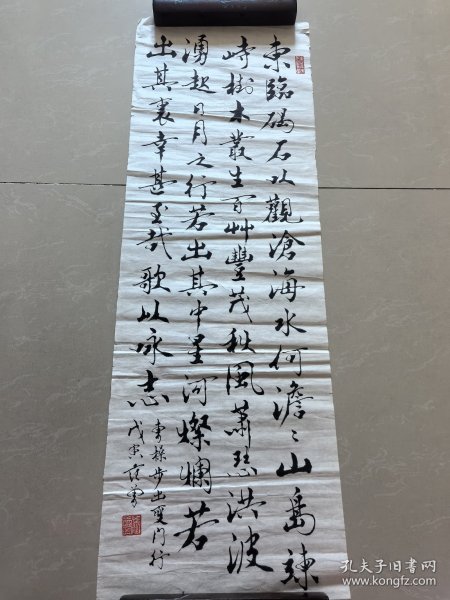 東臨碣石以觀滄海水何澹〻山島竦
峙樹木叢生百艸豐茂秋風蕭瑟洪波
湧起日月之行若出其中星河燦爛若
出其裏幸甚至哉歌以咏志
曹操步出夏门行
戊寅
孔夫子旧书网
www.kongfz.com